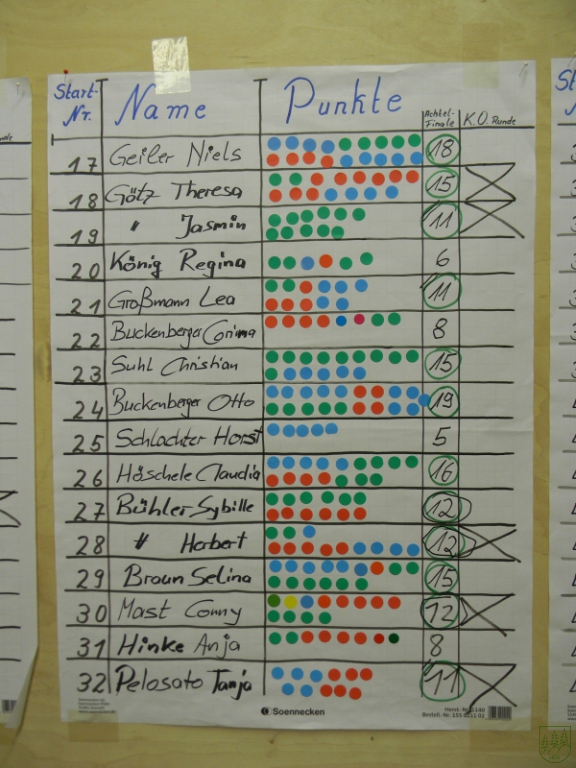 Start-Nr. Name Punkte Achtel-Finale K.O. Runde
17 Geiler Niels 18
18 Götz Theresa 15
19 " Jasmin 11
20 König Regina 6
21 Großmann Lea 11
22 Buckenberger Corinna 8
23 Suhl Christian 15
24 Buckenberger Otto 19
25 Schlachter Horst 5
26 Höschele Claudia 16
27 Bühler Sybille 12
28 " Herbert 12
29 Braun Selina 15
30 Mast Conny 12
31 Hinke Anja 8
32 Pelosato Tanja 11
Soennecken